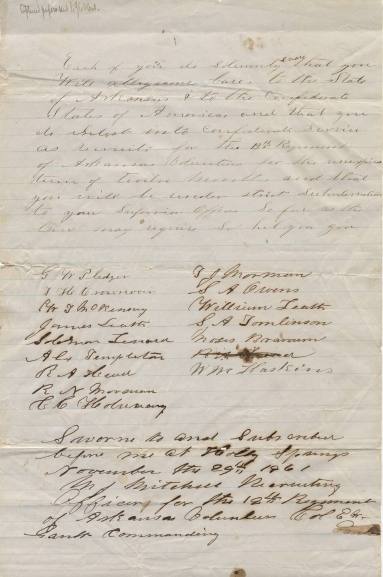 Each of you do Solemnly Swear that you
Will allegiance bare to the State
of Arkansas & to the Confederate
States of America and that you
do enlist into Confederate Service
as recruits for the 12th Regiment
of Arkansas Volunteers for the unexpired
term of twelve months and that
you will be under strict Subordination
to your Superior Officer So far as the
Law may require So help you God
G W Pledger
C T McKenney
James Leath
Solomon
A L Templeton
R A Hewel
R N Morman
C C Holmaway
T J Morman
S A Owens
William Leath
S A Tomlinson
Moses
Wm Haskins
Sworne to and Subscribed
before me at Holly Springs
November the 29th 1861
M Mitchell Recruiting
Officer for the 12th Regiment
of Arkansas Volunteers Col E W
Gantt Commanding